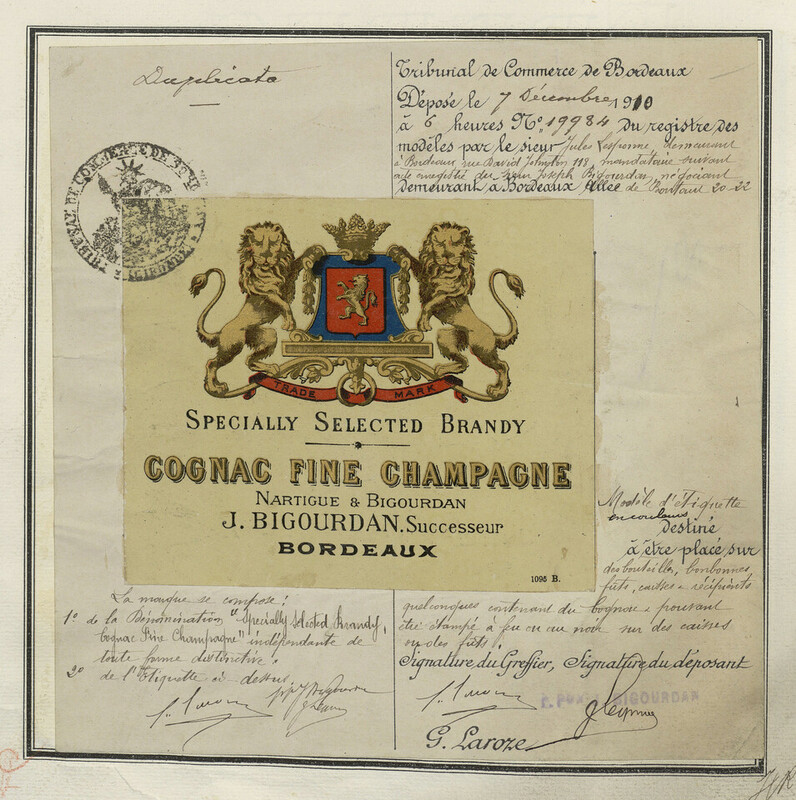 Duplicata
Tribunal de Commerce de Bordeaux
Déposé le 7 Décembre 1910
à 6 heures No. 19984 du registre des
modèles par le sieur Jules Lesponne, demeurant
à Bordeaux, rue David Johnston 118, mandataire suivant
acte enregistré du sieur Joseph Bigourdan, négociant
demeurant à Bordeaux Allée de Boutaut 20-22
TRIBUNAL DE COMMERCE DE BORDEAUX
TRADE MARK
SPECIALLY SELECTED BRANDY
COGNAC FINE CHAMPAGNE
NARTIGUE & BIGOURDAN
J. BIGOURDAN. Successeur
BORDEAUX
1095 B.
Modèle d'étiquette
en couleurs
destiné
à être placé sur
des bouteilles, bonbonnes,
fûts, caisses & récipients
quelconques contenant du cognac & pouvant
être étampé à feu ou au noir sur des caisses
ou des fûts.
La marque se compose:
1º de la Dénomination "Specially Selected Brandy,
Cognac Fine Champagne" indépendante de
toute forme distinctive.
2º de l'Etiquette ci dessus.
Signature du Greffier, Signature du déposant
BIGOURDAN
G. Laroze